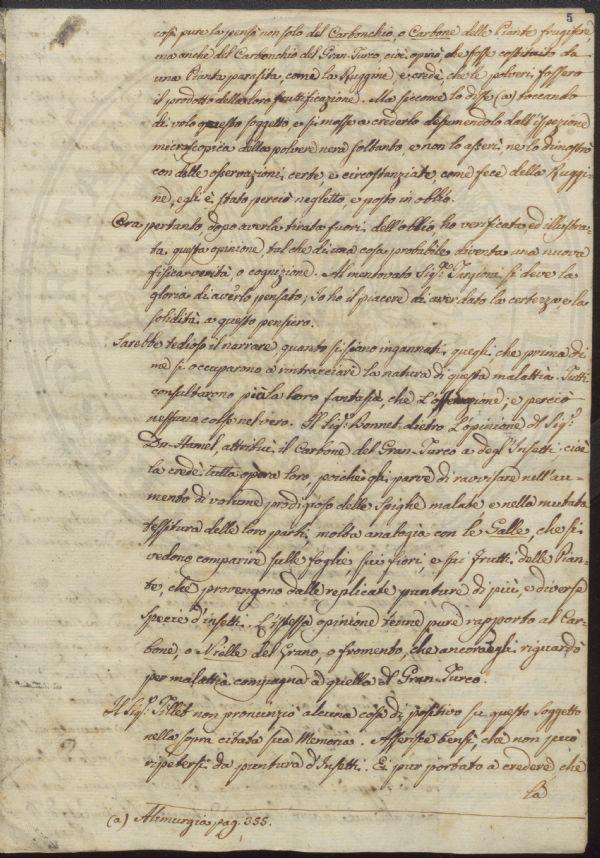 5
così pure la pensò non solo del Carbonchio, o Carbone delle Piante frugifere,
ma anche del Carbonchio del Gran-Turco, cioè opinò che fosse costituito da
una Pianta parasita, come la Ruggine e credè, che le polveri fossero
il prodotto della loro fruttificazione. Ma siccome lo disse (a) toccando
di volo questo soggetto, e si mosse a crederlo desumendolo dall'ispezione
microscopica della polvere nera soltanto, e non lo asserì, ne lo dimostrò
con delle osservazioni certe, e circostanziate, come fece della Ruggi-
ne, egli è stato perciò negletto, e posto in oblio.
Ora pertanto dopo averla tirata fuori dell'oblio, ho verificata, ed illustra-
ta questa opinione tal che di una cosa probabile diventa una nuova
fisica verità, o cognizione. Al mentovato Sig.r Targioni si deve la
gloria di averlo pensato; Io ho il piacere di aver dato la certezza, e la
solidità a questo pensiero.
Sarebbe tedioso il narrare, quanto si siano ingannati quegli, che prima di
me si occuparono a rintracciare la natura di questa malattia. Tutti
consultarono più la loro fantasia, che l'osservazione; e perciò
nessuno colse nel vero. Il Sig.r Bonnet dietro l'opinione del Sig.r
Du-Hamel, attribuì il Carbone del Gran-Turco a degl'Insetti: cioè
la credè tutta opera loro, poichè gli parve di ravvisare nell'au-
mento di volume prodigioso delle Spighe malate e nella mutata
tessitura delle loro parti, molta analogia con le Galle, che si
vedono comparire sulle foglie, sui fiori, e sui frutti delle Pian-
te, che provengono dalle replicate punture di più, e diverse
specie d'insetti. L'istessa opinione tenne pure rapporto al Car-
bone, o Nielle del Grano, o fromento, che ancora egli riguardò
per malattia compagna a quella del Gran-Turco.
Il Sig.r Tillet non pronunziò alcuna cosa di positivo su questo soggetto
nella sopra citata sua Memoria. Asserisce bensì, che non può
ripetersi da puntura d'Insetti. Ei pur portato a credere che
la
(a) Alimurgia pag. 355.